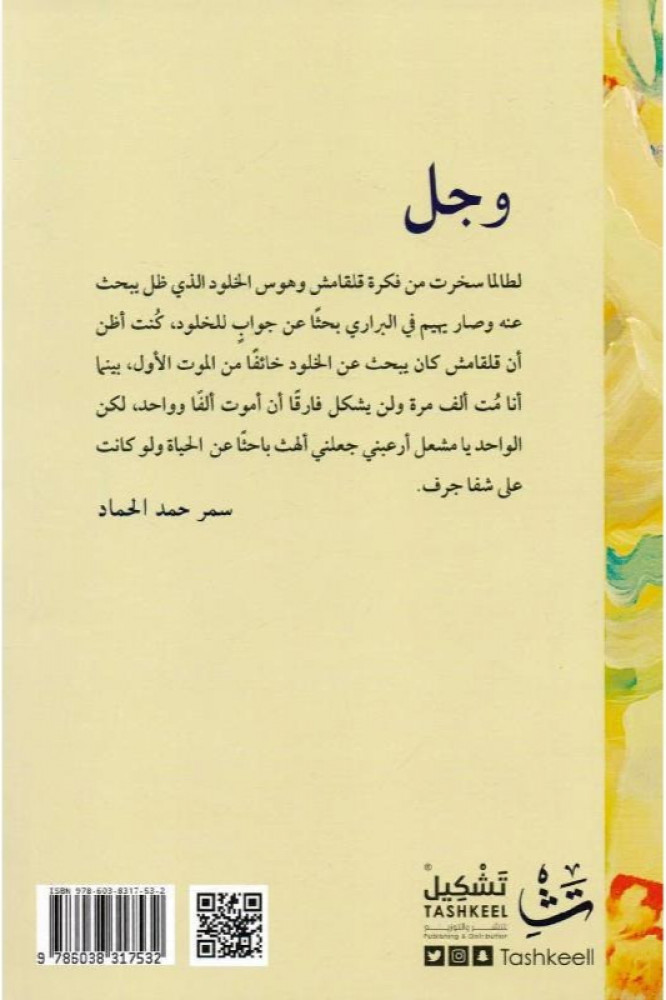 وجل
لطالما سخرت من فكرة قلقامش وهوس الخلود الذي ظل يبحث
عنه وصار يهيم في البراري بحثًا عن جوابٍ للخلود، كُنت أظن
أن قلقامش كان يبحث عن الخلود خائفًا من الموت الأول، بينما
أنا مُت ألف مرة ولن يشكل فارقًا أن أموت ألفًا وواحد، لكن
الواحد يا مشعل أرعبني جعلني ألهث باحثًا عن الحياة ولو كانت
على شفا جرف.
سمر حمد الحماد
ISBN 978-603-8317-53-2
9 786038 317532
تَشْكِيل®
TASHKEEL
للنشر والتوزيع
Publishing & Distribution
Tashkeell